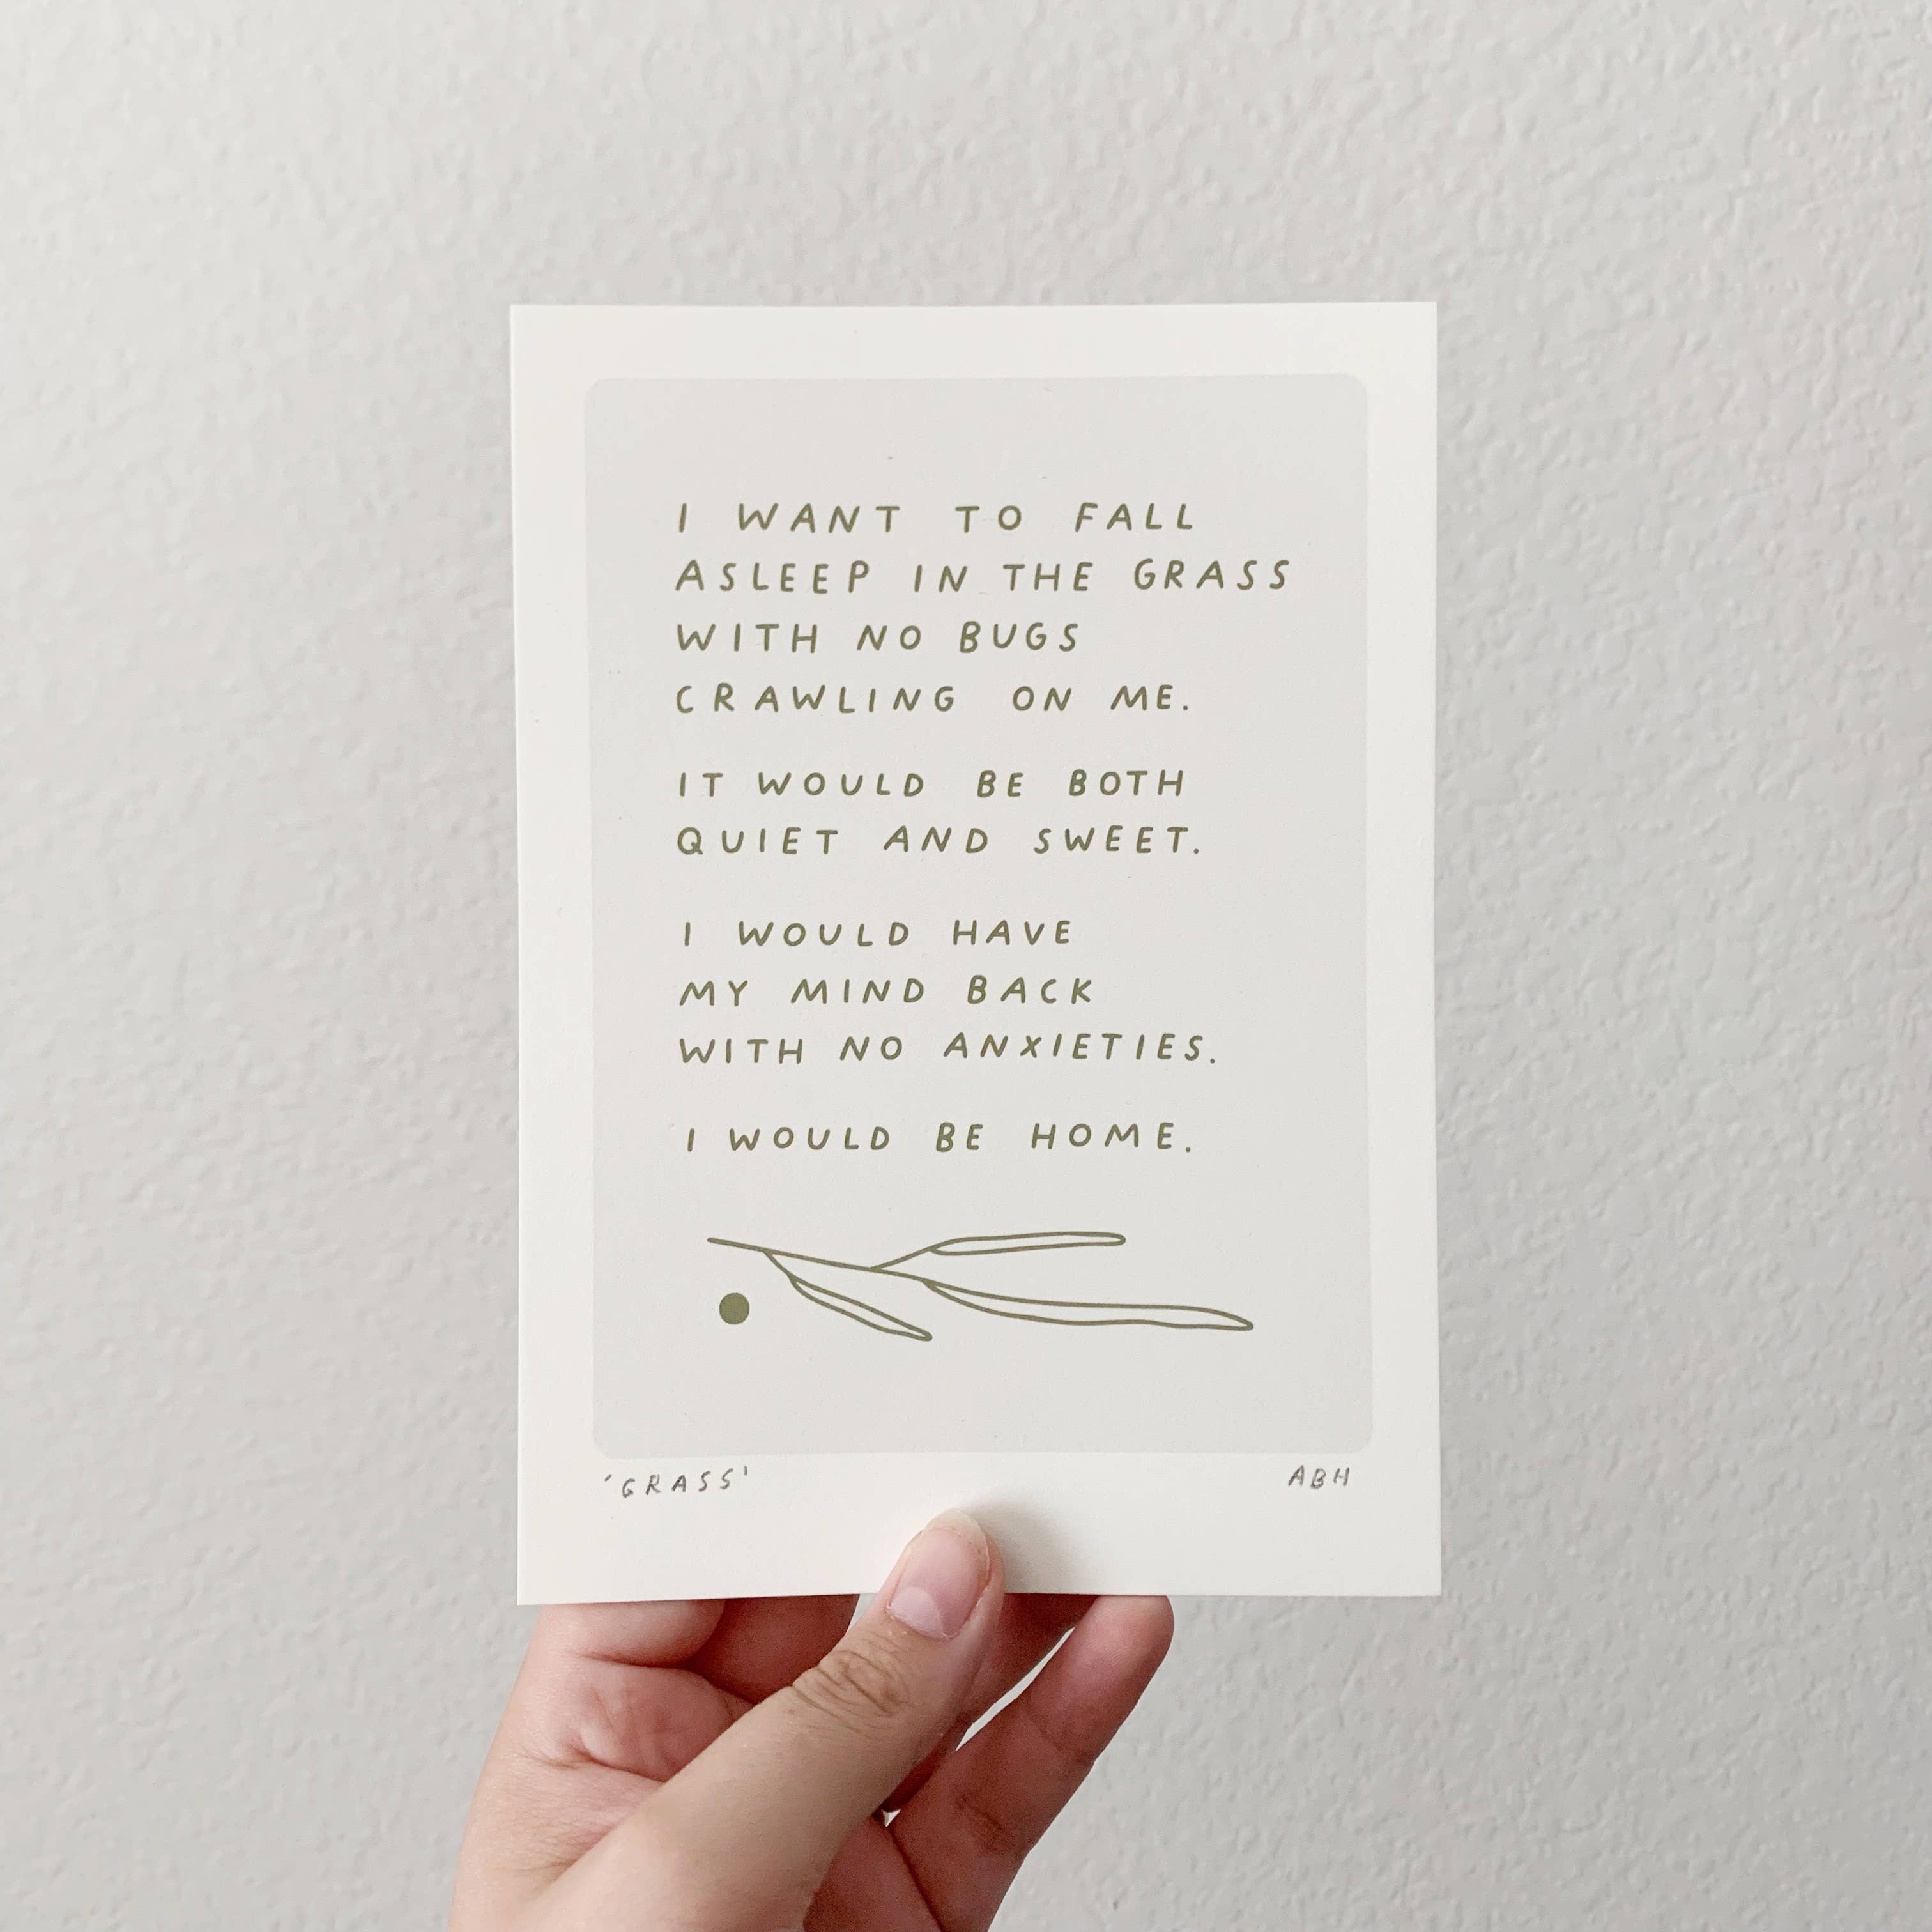 I WANT TO FALL
ASLEEP IN THE GRASS
WITH NO BUGS
CRAWLING ON ME.
IT WOULD BE BOTH
QUIET AND SWEET.
I WOULD HAVE
MY MIND BACK
WITH NO ANXIETIES.
I WOULD BE HOME.
'GRASS' ABH